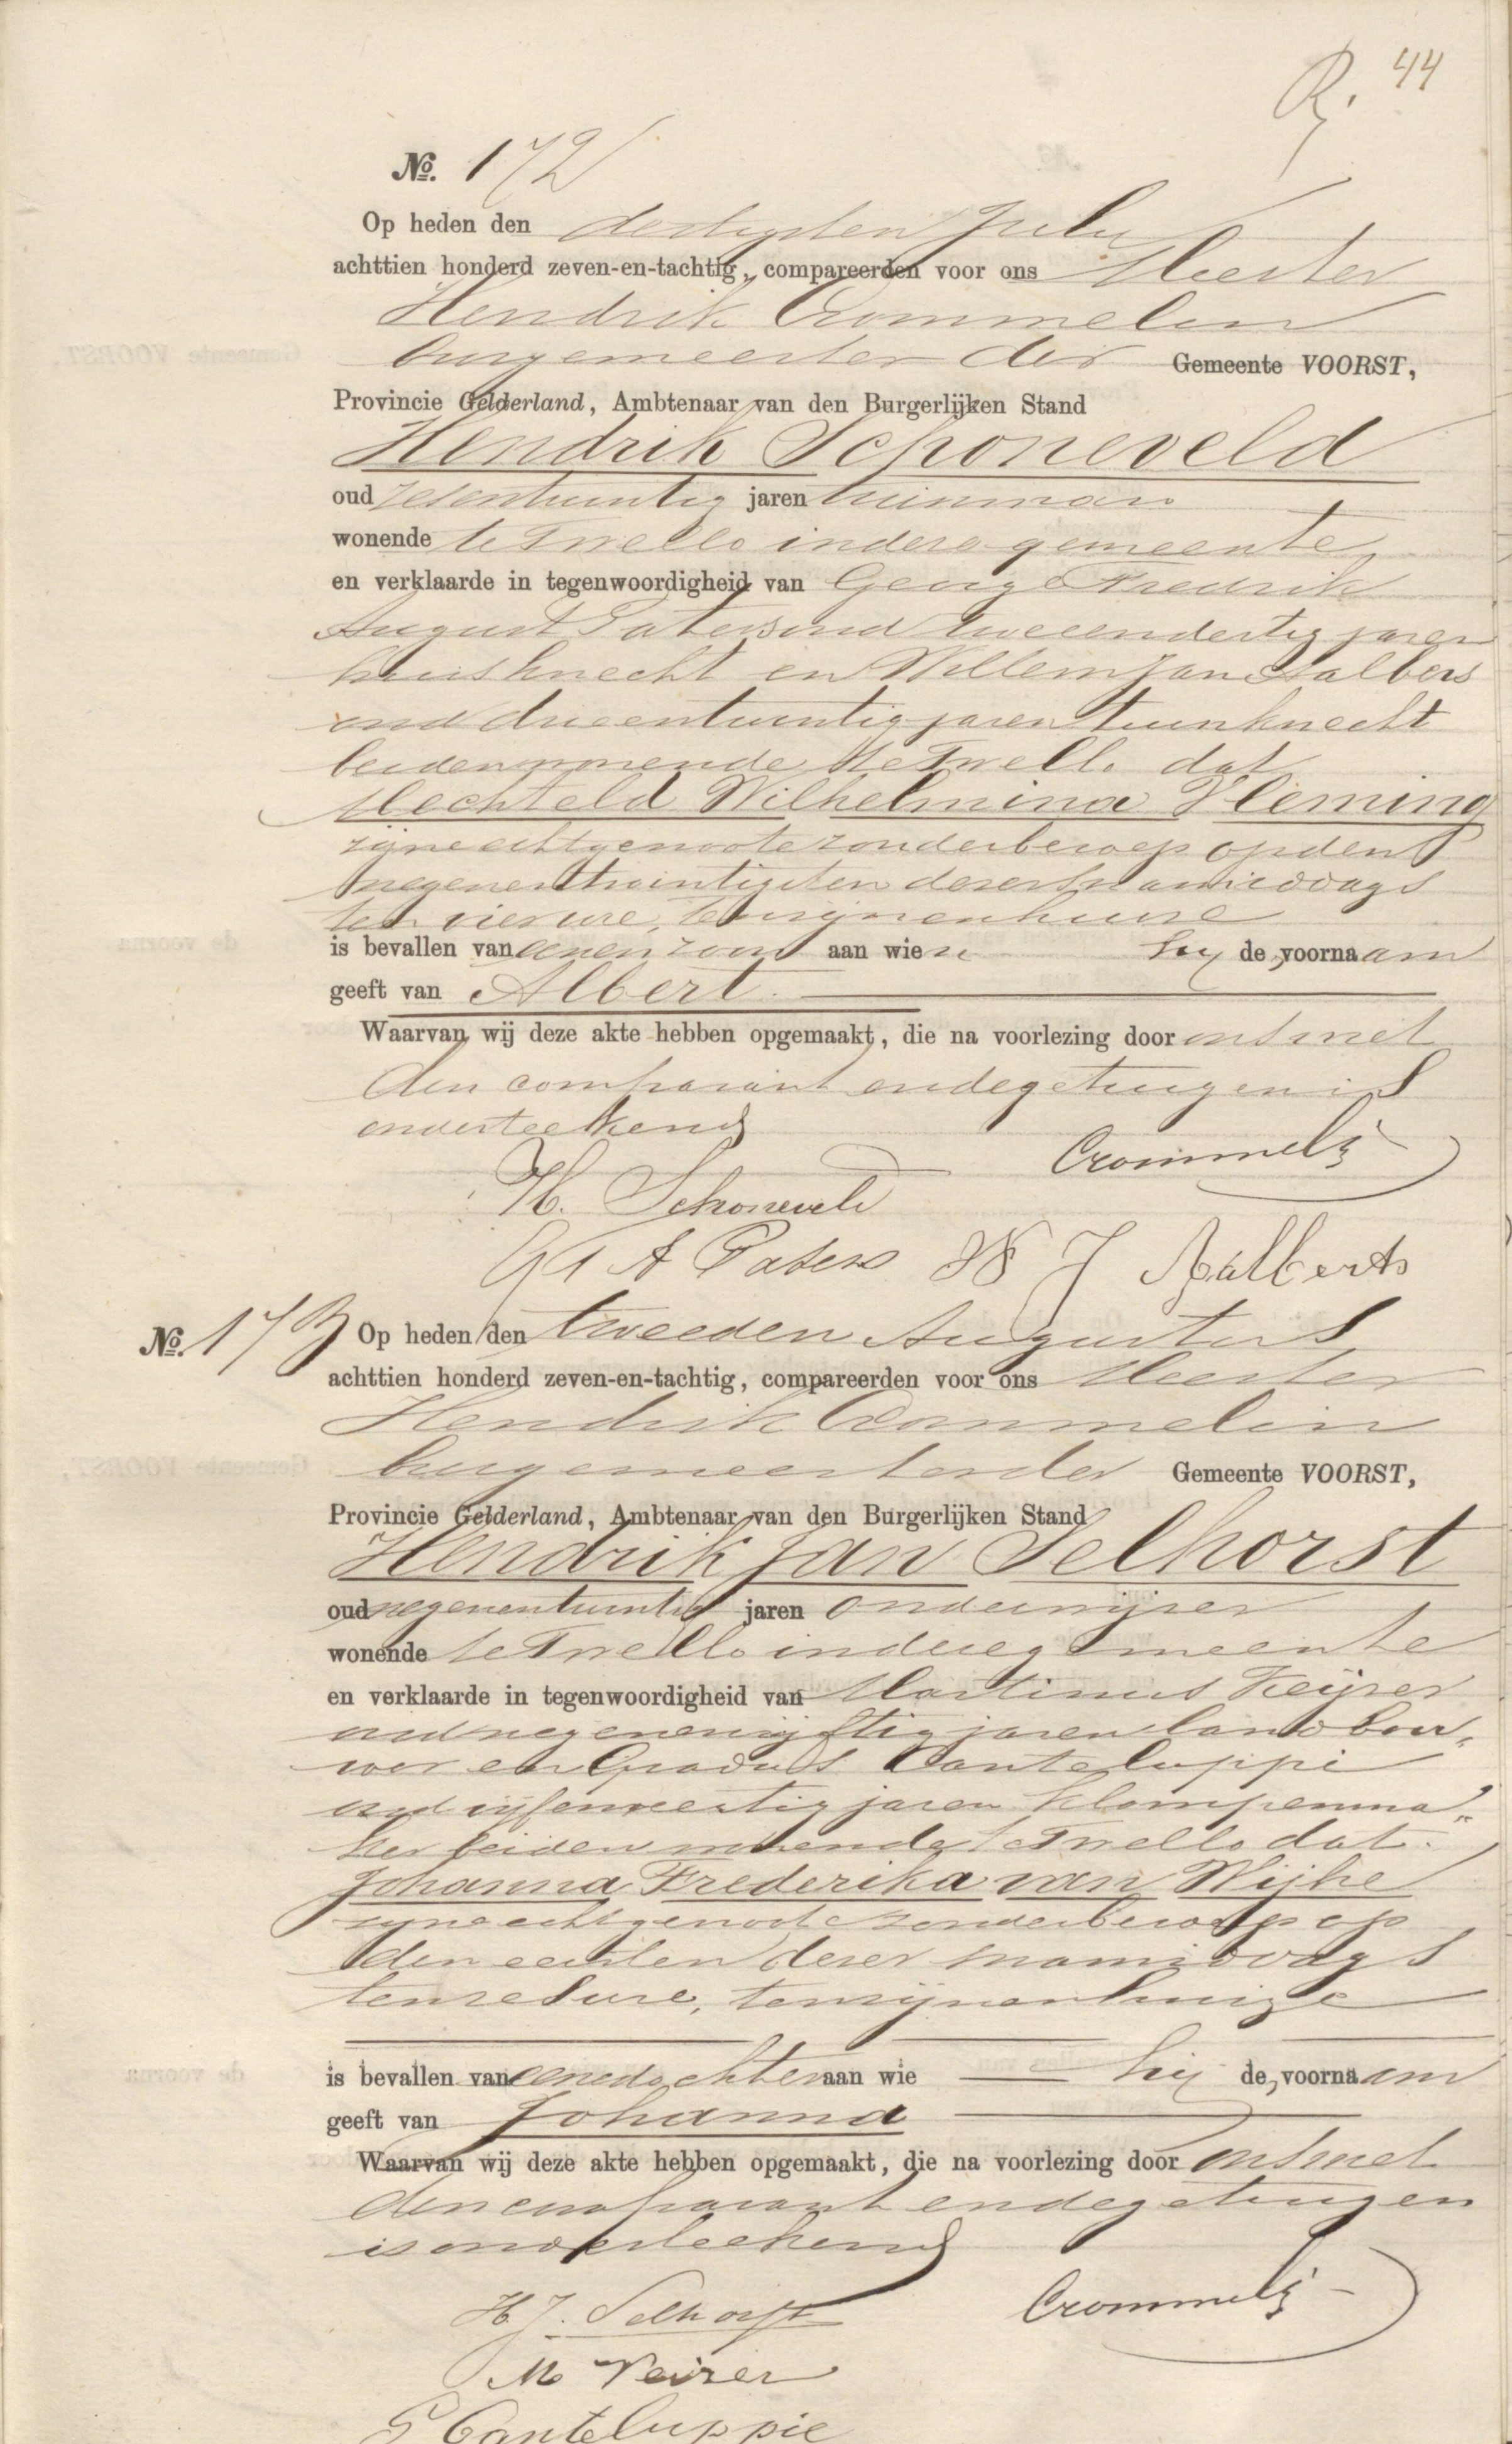 R. 44
No. 172
Op heden den dertigsten Juli
achttien honderd zeven-en-tachtig, compareerden voor ons Meester
Hendrik Crommelin
burgemeester der Gemeente VOORST,
Provincie Gelderland, Ambtenaar van den Burgerlijken Stand
Hendrik Schoneveld
oud zesentwintig jaren tuinman
wonende te Twello in deze gemeente
en verklaarde in tegenwoordigheid van George Fredrik
August Paters oud tweeendertig jaren
huisknecht en Willem Jan Aalbers
oud drieentwintig jaren tuinknecht
beiden wonende te Twello dat
Mechteld Wilhelmina Fleming
zijne echtgenoote zonder beroep op den
negenentwintigsten dezer namiddags
ten vier ure, te zijnen huize
is bevallen van eenen zoon aan wien hij de voornaam
geeft van Albert.
Waarvan wij deze akte hebben opgemaakt, die na voorlezing door ons met
den comparant en de getuigen is
onderteekend
Crommelin
H. Schoneveld
G F A Paters W J Aalberts
No. 173 Op heden den tweeden Augustus
achttien honderd zeven-en-tachtig, compareerden voor ons Meester
Hendrik Crommelin
burgemeester der Gemeente VOORST,
Provincie Gelderland, Ambtenaar van den Burgerlijken Stand
Hendrik Jan Selhorst
oud negenentwintig jaren onderwijzer
wonende te Twello in deze gemeente
en verklaarde in tegenwoordigheid van Martinus Keijzer
oud negenenvijftig jaren landbou„
wer en Gradus Canteluppi
oud vijfenveertig jaren klompenma„
ker beiden wonende te Twello dat
Johanna Frederika van Wijhe
zijne echtgenoote zonder beroep op
den eersten dezer namiddags
ten zes ure, ten zijnen huize
is bevallen van eene dochter aan wie hij de voornaam
geeft van Johanna
Waarvan wij deze akte hebben opgemaakt, die na voorlezing door ons met
den comparant en de getuigen
is onderteekend
H J. Selhorst Crommelin
M Keizer
G Canteluppie